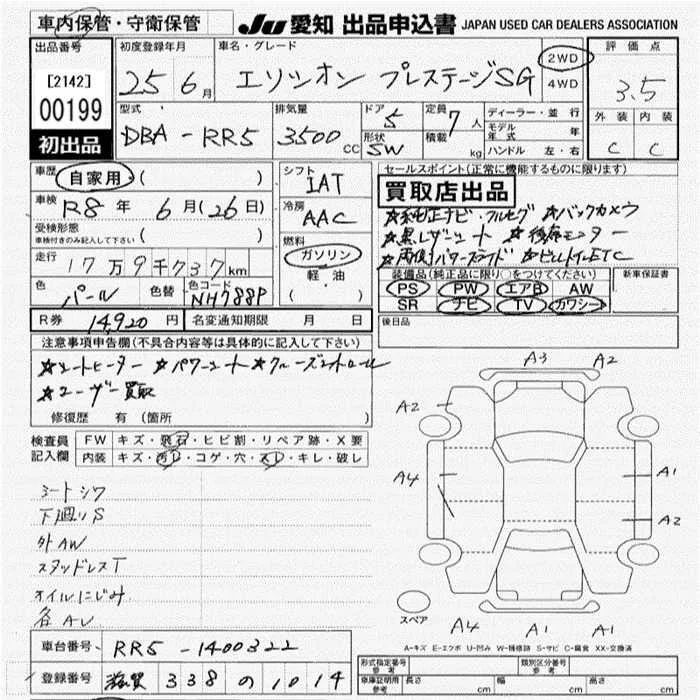 車内保管・守衛保管
JU 愛知 出品申込書 JAPAN USED CAR DEALERS ASSOCIATION
出品番号
[2142]
00199
初出品
初度登録年月
25 6月
車名・グレード
エリシオン プレステージSG
2WD
4WD
評価点
3.5
外装 内装
C C
型式
DBA-RR5
排気量
3500CC
ドア 5
形状 SW
定員 7人
積載 kg
ディーラー・並行
モデル年式 年
ハンドル 左・右
車歴 自家用 ( )
車検 R8年 6月(26日)
受検形態
車検付きのみ記入して下さい ( )
走行 17万9千737km
色 パール 色替 色コード NH788P
R券 14,920円 名変通知期限 月 日
シフト
IAT
冷房
AAC
燃料
ガソリン
軽・油
( )
セールスポイント(正常に機能するものに限ります)
買取店出品
★純正ナビ・フルセグ ★バックカメラ
★黒レザーシート ★後席モニター
★両側パワースライド ★ビルトインETC
装備品(純正品に限り○をつけてください) 新車保証書
PS PW エアB AW
SR ナビ TV カワシート
後日品
注意事項申告欄(不具合内容等は具体的に記入して下さい)
★シートヒーター ★パワーシート ★クルーズコントロール
★ユーザー買取
修復歴 有(箇所 )
検査員記入欄
FW キズ・飛石・ヒビ割・リペア跡・X要
内装 キズ・汚レ・コゲ・穴・スレ・キレ・破レ
シートシワ
下廻りS
外AW
スタッドレスT
オイルにじみ
各AU
A3 A2
A2
A4 A1
A2
スペア
A4 A1 A1
A-キズ E-エクボ U-凹み W-補修跡 S-サビ C-腐食 XX-交換済
車台番号 RR5-1400322
登録番号 滋賀 338 の 1014
形式指定番号 参考 類別区分番号 参考
車庫証明用 参考 長さ cm 幅 cm 高さ cm